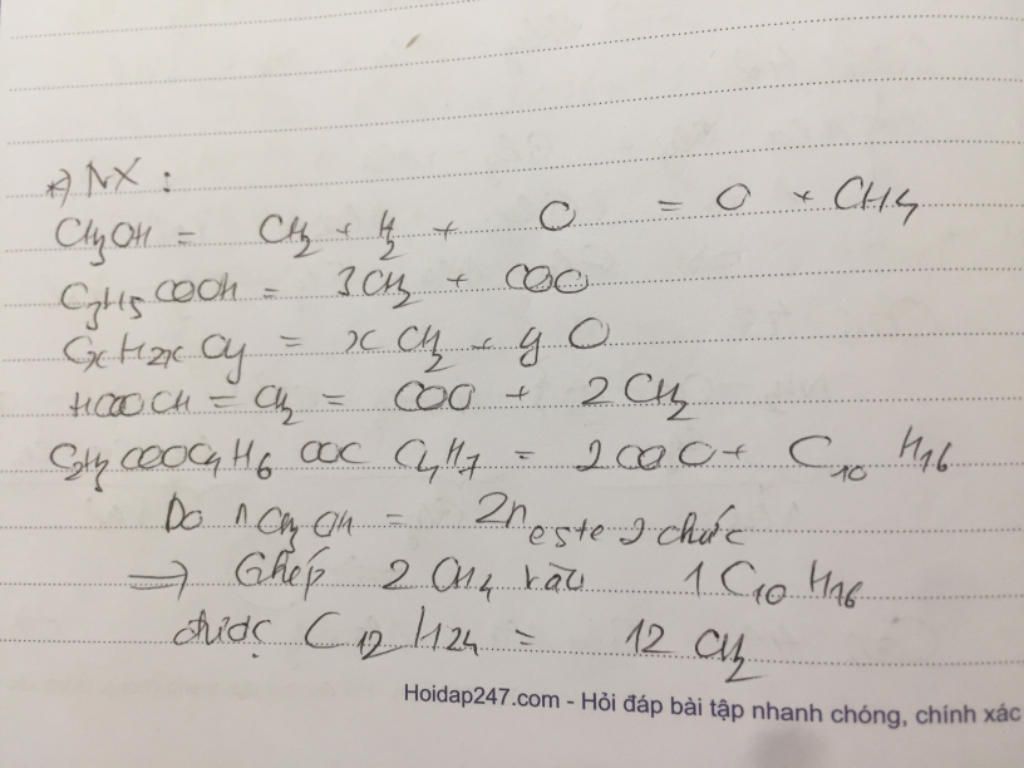 *) NX :
CH3OH = CH2 + H2 + O = O + CH4
C3H5COOH = 3CH2 + COO
CxH2xOy = x CH2 + y O
HCOOCH = CH2 = COO + 2 CH2
C2H3COOC4H6OOC C4H7 = 2COO + C10 H16
Do nCH3OH = 2n este 2 chức
=> Ghép 2 CH4 vào 1 C10 H16
được C12 H24 = 12 CH2
Hoidap247.com - Hỏi đáp bài tập nhanh chóng, chính xác